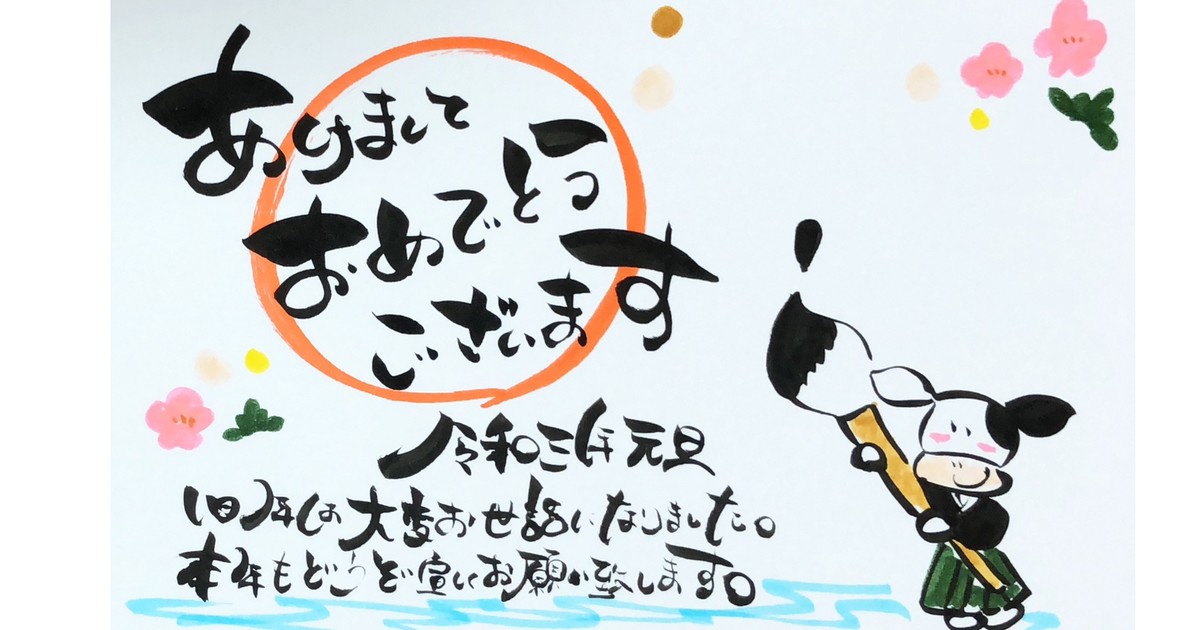 あけまして
おめでとう
ございます
令和三年 元旦
旧年は大変お世話になりました。
本年もどうぞ宜しくお願い致します。